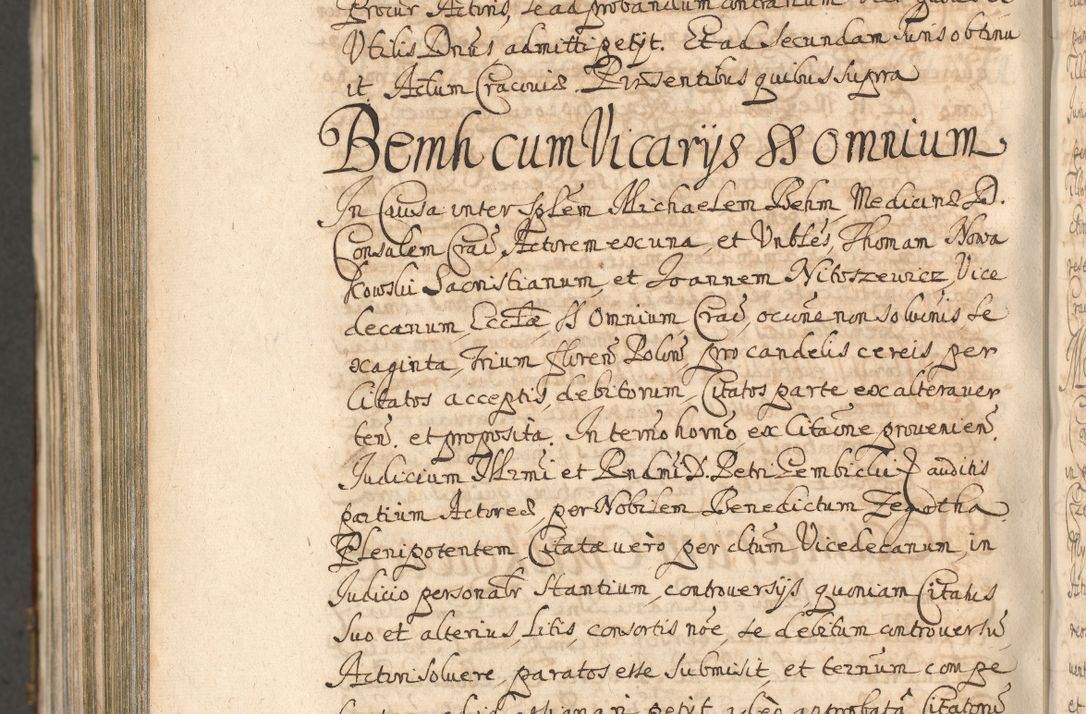 Utilis Dnus admitti petyt. Et ad Secundam Juris obtinu
it. Actum Cracoviæ. Præsentibus quibus supra
Bemh cum Vicarijs SS Omnium
In Causa inter Splem Michaelem Behm, Medicinæ D.
Consulem Craē, Actorem ex una, et Vnbles, Thomam Nowa
kowski Sacristianum, et Joannem Nitoszewicz, Vice
decanum, Ecclæ SS Omnium, Craē, occõne non solutionis, se
xaginta, Trium florenō Polonō, pro candelis cereis, per
Citatos acceptis, debitorum, Citatos parte ex altera ver
teñ. et proposita. In termō hornō, ex Citaõne provenieñ.
Judicium Illrmi et Rndmi D. Petri Gembicki auditis
partium Actoreæ, per Nobilem Benedictum Zegotha
Plenipotentem, Citatæ vero per dtum Vicedecanum, in
Judicio personalr stantium, controversijs, quoniam Citatus
Suo et alterius, litis, consortis nōe, se debitum controversū
Actori solvere, paratos esse submisit, et ternum compe